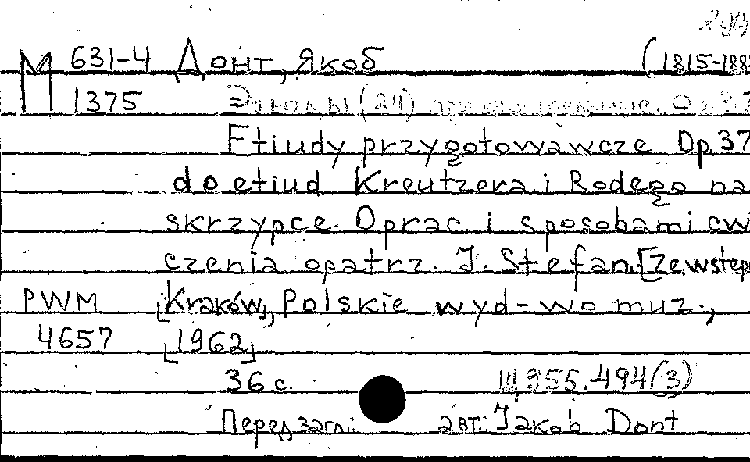 М 631-4 Донт, Якоб (1815-188
1375 Этюды (24) Op. 37
Etiudy przygotowawcze Op. 37
do etiud Kreutzera i Rodego na
skrzypce. Oprac. i sposobami ćwi
czenia opatrz. J. Stefan. [Ze wstęp
PWM [Kraków], Polskie wyd-wo muz.,
4657 [1962]
36 с. 14.355.494(3)
Перед загл.: авт: Jakob Dont